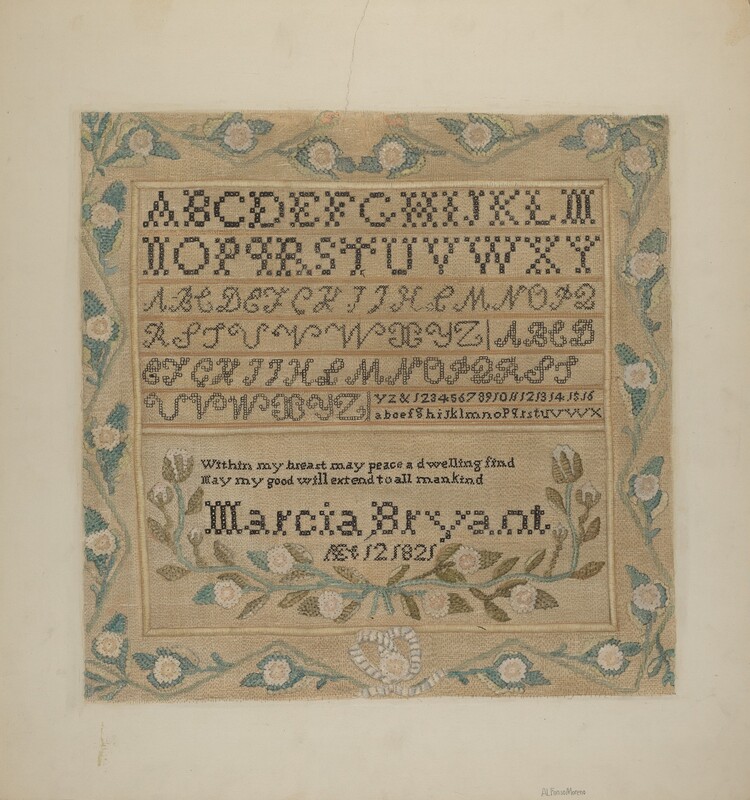 ABCDEFGHIJKLM
NOPQRSTUVWXY
ABCDEFGHIJKLMNOPQ
RSTUVWXYZ ABCD
EFGHIJKLMNOPQRST
UVWXYZ YZ& 12345678910 11 12 13 14 15 16
abcefghijklmnopqrstuvwx
Within my breast may peace a dwelling find
May my good will extend to all mankind
Marcia Bryant
Æt 12 1821